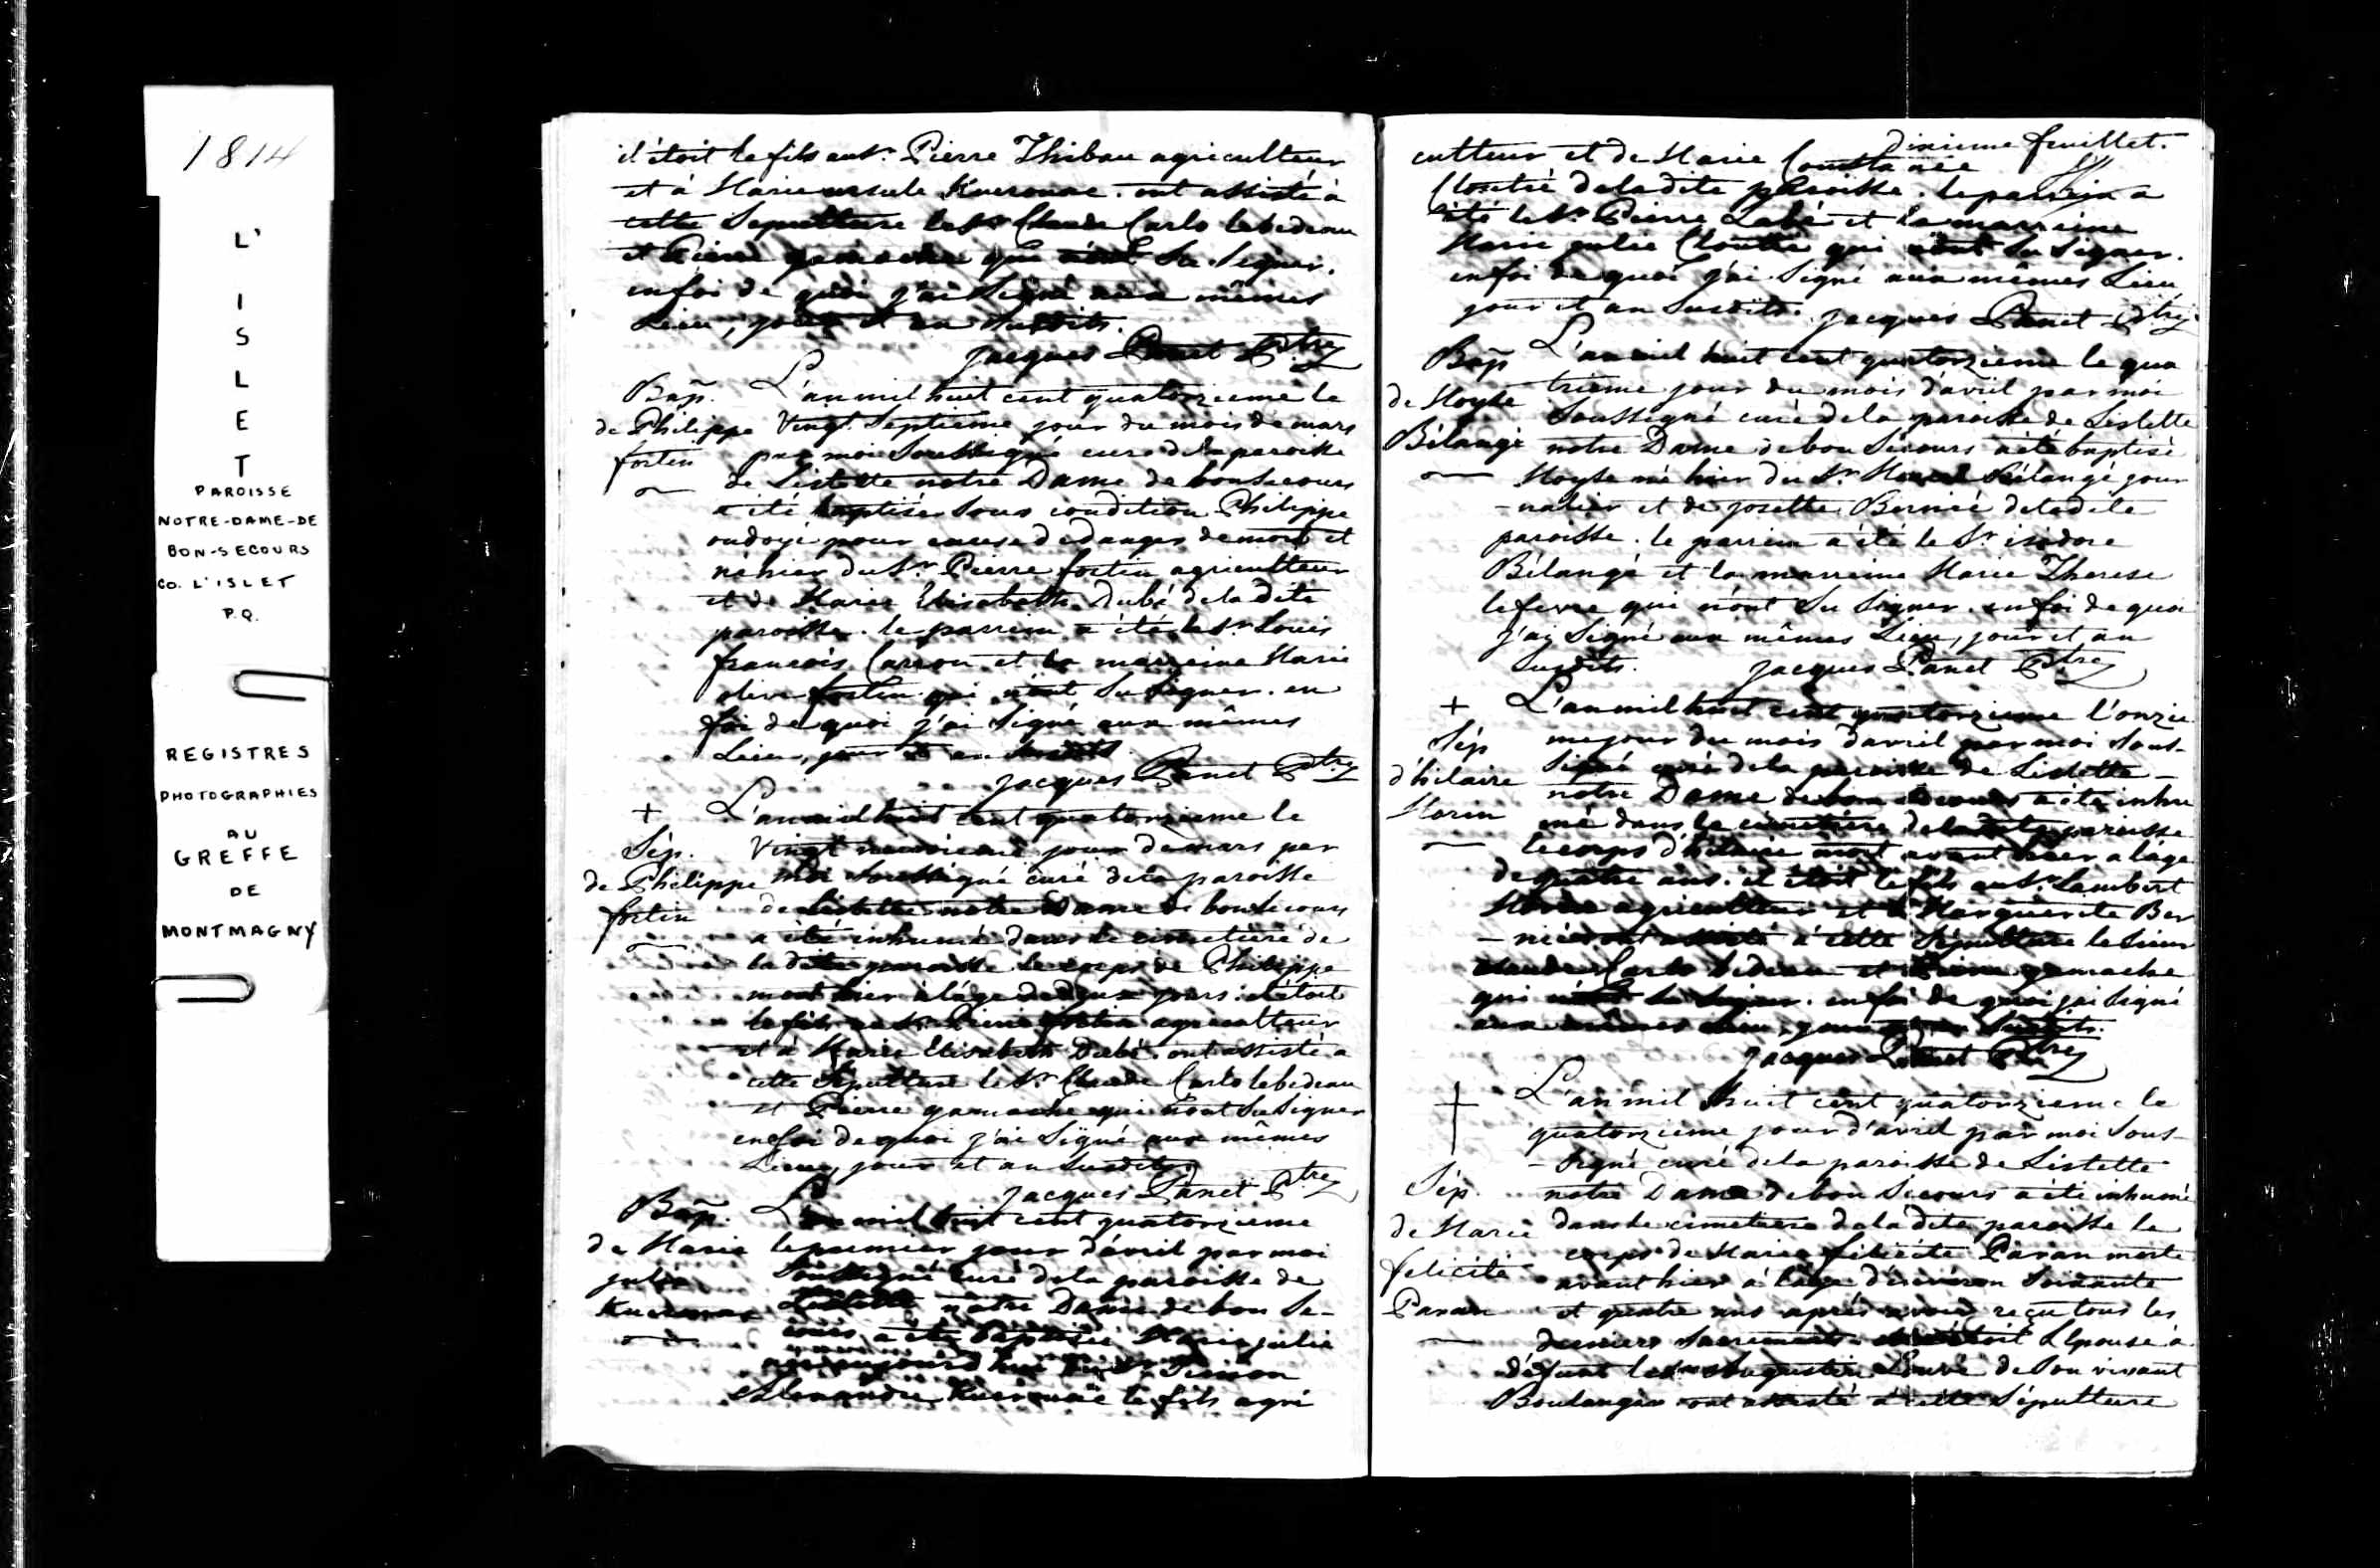 1814
L'
I
S
L
E
T
PAROISSE
NOTRE-DAME-DE
BON-SECOURS
CO. L'ISLET
P.Q.
REGISTRES
PHOTOGRAPHIES
AU
GREFFE
DE
MONTMAGNY
il étoit le fils au Sr. Pierre Thibau agriculteur
et à Marie ursule Kuerouac. ont assisté à
cette Sepulture le Sr Claude Carlo lebedeau
et Pierre gamache qui n'ont Su Signer.
en foi de quoi j'ai Signé aux mêmes
Lieu, jour et an Susdits.
jacques Panet Ptre
Bap. L'an mil huit cent quatorzieme le
de Philippe Vingt Septieme jour du mois de mars
fortin par moi Soussigné curé de la paroisse
de Lislette notre Dame de bonsecours
a été baptisé Sous condition Philippe
ondoyé pour cause de danger de mort et
né hier du Sr. Pierre fortin agriculteur
et de Marie Elisabeth Dubé de la dite
paroisse. le parrein a été le Sr. Louis
francois Caron et la marreine Marie
olive fortin qui n'ont Su Signer. en
foi de quoi j'ai Signé aux mêmes
Lieu, jour et an Susdits
jacques Panet Ptre
+ L'an mil huit cent quatorzieme le
Sép. Vingt neuvieme jour de mars par
de Philippe moi Soussigné curé de la paroisse
fortin de Lislette notre Dame de bonsecours
a été inhumé dans le cimetiere de
la dite paroisse le corps de Philippe
mort hier à l'âge de deux jours. il étoit
le fils au Sr Pierre fortin agriculteur
et à Marie Elisabeth Dubé. ont assisté a
cette Sepulture le Sr Claude Carlo lebedeau
et Pierre gamache qui n'ont Su Signer
en foi de quoi j'ai Signé aux mêmes
Lieu, jour et an Susdits
jacques Panet Ptre
Bap. L'an mil huit cent quatorzieme
de Marie le premier jour d'avril par moi
julie Soussigné curé de la paroisse de
Kuerouac Lislette notre Dame de bon Se-
cours a été baptisée Marie julie
née aujourd'hui du Sr. Simon
Alexandre Kuerouac le fils agri
dixieme feuillet.
culteur et de Marie Constance
Cloutié de la dite paroisse. le parrein a
été le Sr Pierre Labé et la marreine
Marie julie Cloutié qui n'ont Su Signer.
en foi de quoi j'ai Signé aux mêmes Lieu
jour et an Susdits. jacques Panet Ptre
Bap L'an mil huit cent quatorzieme le qua
de Moyse trieme jour du mois d'avril par moi
Bélangé Soussigné curé de la paroisse de Lislette
notre Dame de bon Secours a été baptisé
Moyse né hier du Sr. Bélangé jour
-nalier et de josette Bernié de la dite
paroisse. le parrein a été le Sr. isidore
Bélangé et la marreine Marie Therese
lefevre qui n'ont Su Signer. en foi de quoi
j'ai Signé aux mêmes Lieu, jour et an
Susdits. jacques Panet Ptre
+ L'an mil huit cent quatorzieme l'onzie
Sép me jour du mois d'avril par moi Sous-
d'hilaire Signé curé de la paroisse de Lislette
Morin notre Dame de bon Secours a été inhu
mé dans le cimetiere de la dite paroisse
le corps d'hilaire mort avant hier a l'âge
de quatre ans. il étoit le fils au Sr. Lambert
Morin agriculteur et à Marguerite Ber
-nié. ont assisté à cette Sepulture le Sieur
claude Carlo lebedeau et Pierre gamache
qui n'ont Su Signer. en foi de quoi j'ai Signé
aux mêmes Lieu, jour et an Susdits.
jacques Panet Ptre
+ L'an mil huit cent quatorzieme le
quatorzieme jour d'avril par moi Sous-
-signé curé de la paroisse de Lislette
Sép. notre Dame de bon Secours a été inhumé
de Marie dans le cimetiere de la dite paroisse le
felicité corps de Marie félicité Paran morte
Paran avant hier à l'âge d'environ Soixante
et quatre ans après avoir reçu tous les
derniers Sacremens. elle étoit l'Epouse à
défunt le Sr augustin de Son vivant
Boulanger ont assisté à cette Sépulture